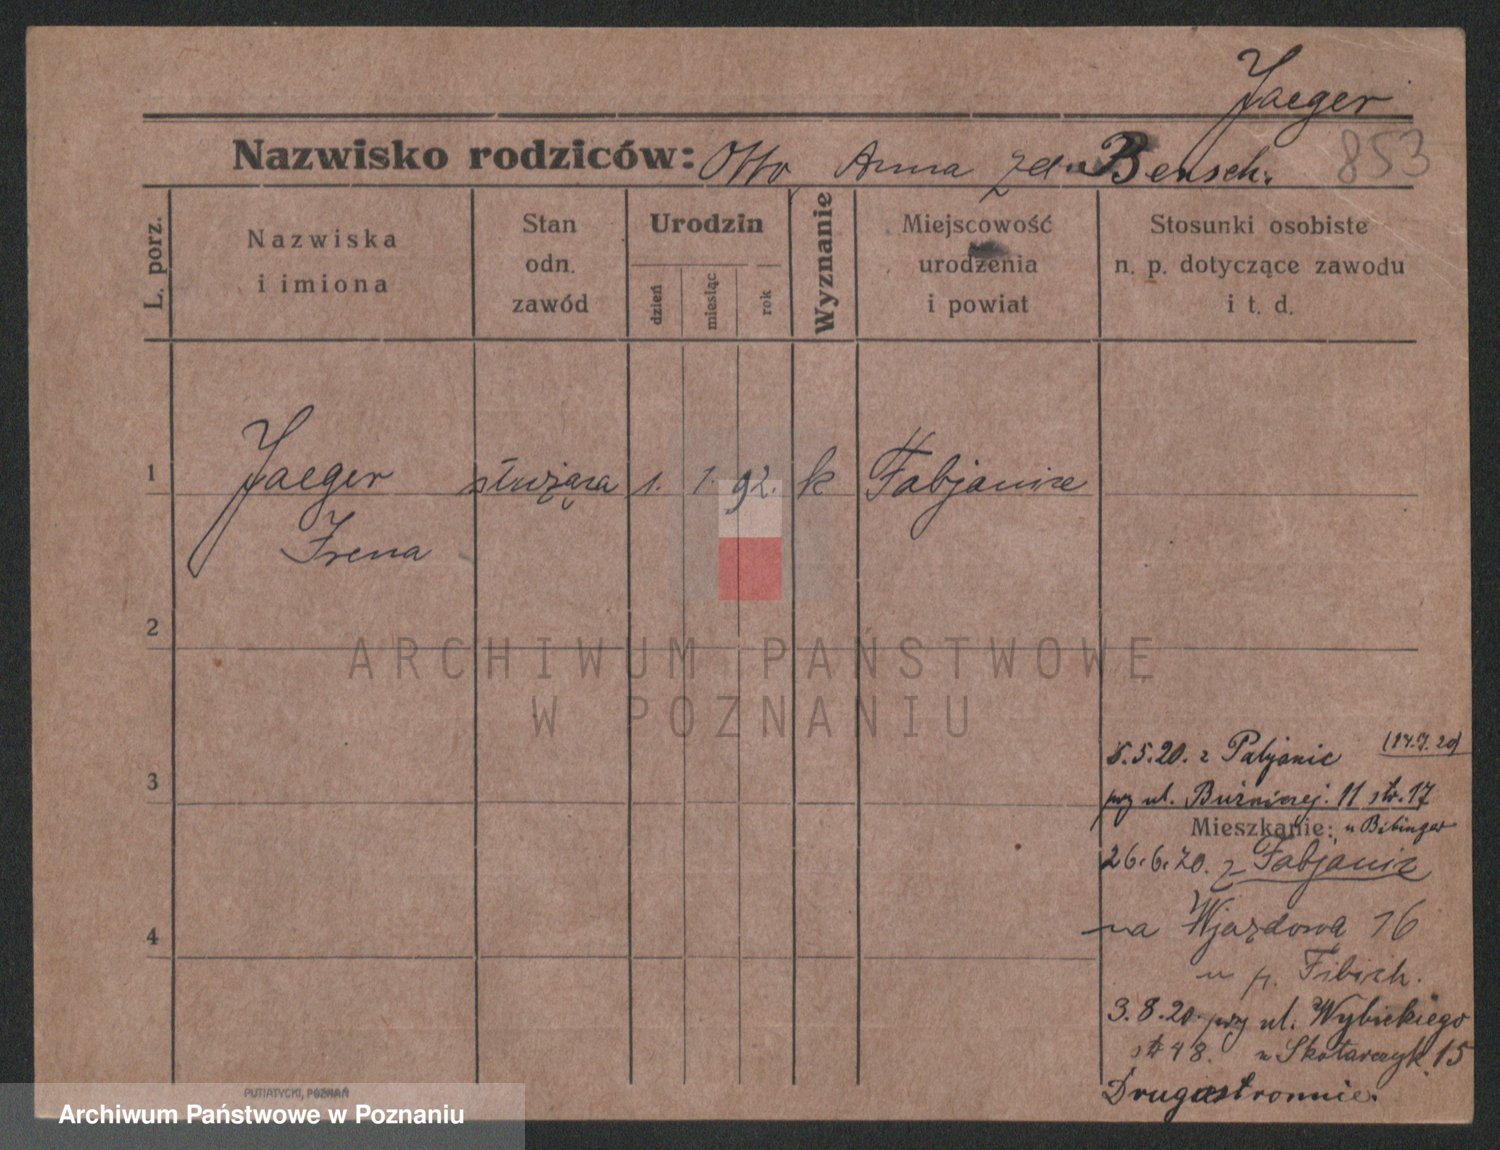 Jaeger
Nazwisko rodziców: Otto, Anna zd. Bensch. 853
L. porz.
Nazwiska
i imiona
Stan
odn.
zawód
Urodzin
dzień
miesiąc
rok
Wyznanie
Miejscowość
urodzenia
i powiat
Stosunki osobiste
n. p. dotyczące zawodu
i t. d.
1 Jaeger służąca 1. 1. 92. k Fabjanice
Irena
2
ARCHIWUM PAŃSTWOWE
W POZNANIU
3
8.5.20. z Pabjanic (14.7.20)
przy ul. Buźniczej. 11 str. 17
Mieszkanie: u
26.6.20. z Fabjanic
4
na Wjazdowa 16
u p. Fibich.
3.8.20. przy ul. Wybickiego
str 48. u Skotarczyk 15
Drugastronnie.
PUTIATYCKI, POZNAŃ
Archiwum Państwowe w Poznaniu